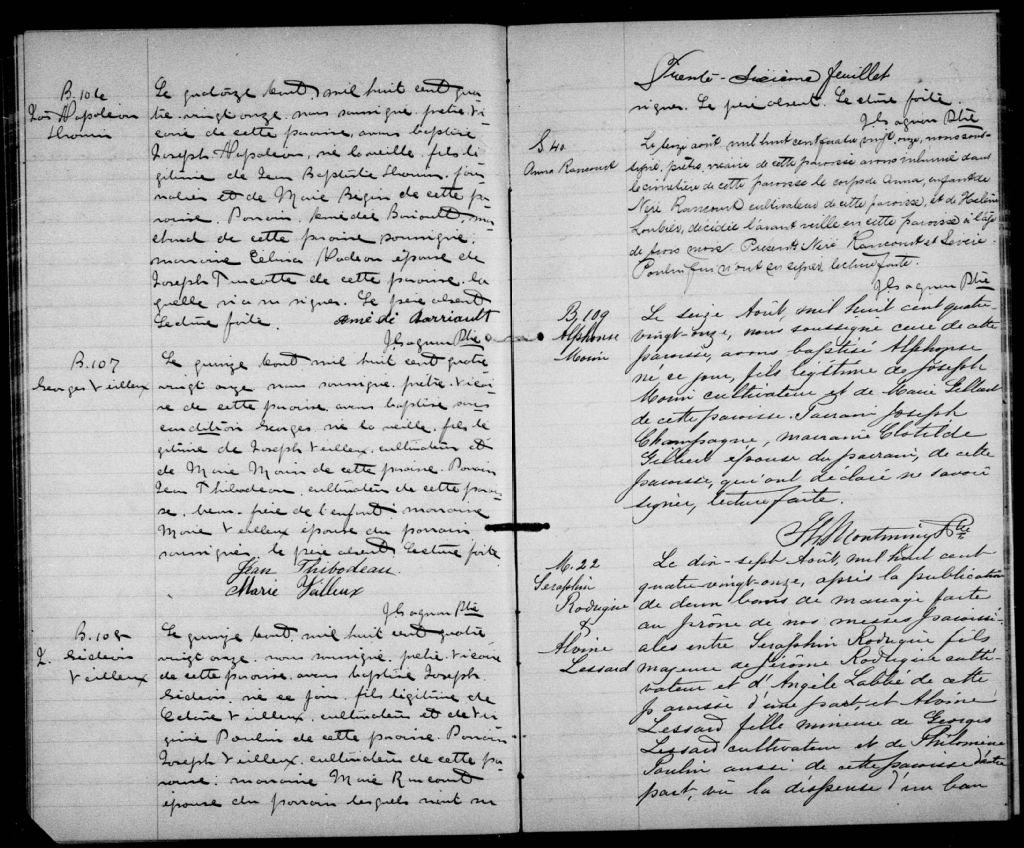 B. 106
Jos Napoléon
Le quatorze Août, mil huit cent qua
tre-vingt onze, nous soussigné, prêtre Vi
caire de cette paroisse, avons baptisé
Joseph Napoléon, né la veille, fils lé
gitime de Jean Baptiste, jour
nalier et de Marie Bégin de cette pa
roisse. Parrain, Amédée
de cette paroisse soussigné;
marraine Célina Nadeau épouse de
Joseph Turcotte de cette paroisse, la
quelle n'a su signer. Le père absent
Lecture faite.
J. Gagnon Ptre
B. 107
Georges Veilleux
Le quinze Août, mil huit cent quatre
vingt onze, nous soussigné, prêtre Vicai
re de cette paroisse, avons baptisé sous
condition Georges, né la veille, fils lé
gitime de Joseph Veilleux, cultivateur et
de Marie Morin de cette paroisse. Parrain
Jean Thibodeau, cultivateur de cette parois
se, beau-frère de l'enfant, marraine
Marie Veilleux épouse du parrain
soussignés, le père absent. Lecture faite
Jean Thibodeau.
Marie Vailleux
J. Gagnon Ptre
B. 108
Gédéon
Veilleux
Le quinze Août, mil huit cent quatre
vingt onze, nous soussigné, prêtre Vicaire
de cette paroisse, avons baptisé Joseph
Gédéon, né ce jour, fils légitime de
Veilleux, cultivateur et de Vir
ginie Poulin de cette paroisse. Parrain
Joseph Veilleux, cultivateur de cette pa
roisse; marraine Marie Rancourt
épouse du parrain lesquels n'ont su
Trente-Sixième feuillet
signer. Le père absent. Lecture faite.
J. Gagnon Ptre
S 40
Anna Rancourt
Le seize août, mil huit cent quatre vingt, onze, nous sous-
signé, prêtre, vicaire de cette paroisse avons inhumé dans
le cimetière de cette paroisse le corps de Anna, enfant de
Néré Rancourt cultivateur de cette paroisse, et de Hélène
décédée l'avant veille en cette paroisse à l'âge
de trois mois. Présents Néré Rancourt et
Poulin qui n'ont su signer, lecture faite.
J. Gagnon Ptre
B. 109
Alphonse
Morin
Le seize Août, mil huit cent quatre
vingt-onze, nous soussigné curé de cette
paroisse, avons baptisé Alphonse
né ce jour, fils légitime de Joseph
Morin cultivateur et de Marie Gilbert
de cette paroisse. Parrain Joseph
Champagne, marraine Clotilde
Gilbert épouse du parrain, de cette
paroisse, qui ont déclaré ne savoir
signer, lecture faite.
Th. Montminy Ptre
M. 22
Seraphin
Rodrigue
&
Alvine
Lessard
Le dix-sept Août, mil huit cent
quatre-vingt-onze, après la publication
de deux bans de mariage faite
au prône de nos messes paroissi-
ales entre Seraphin Rodrigue fils
majeur de Jérôme Rodrigue culti-
vateur et d'Angèle Labbé de cette
paroisse d'une part, et Alvine
Lessard fille mineure de Georges
Lessard cultivateur et de Philomène
Poulin aussi de cette paroisse d'autre
part, vu la dispense d'un ban